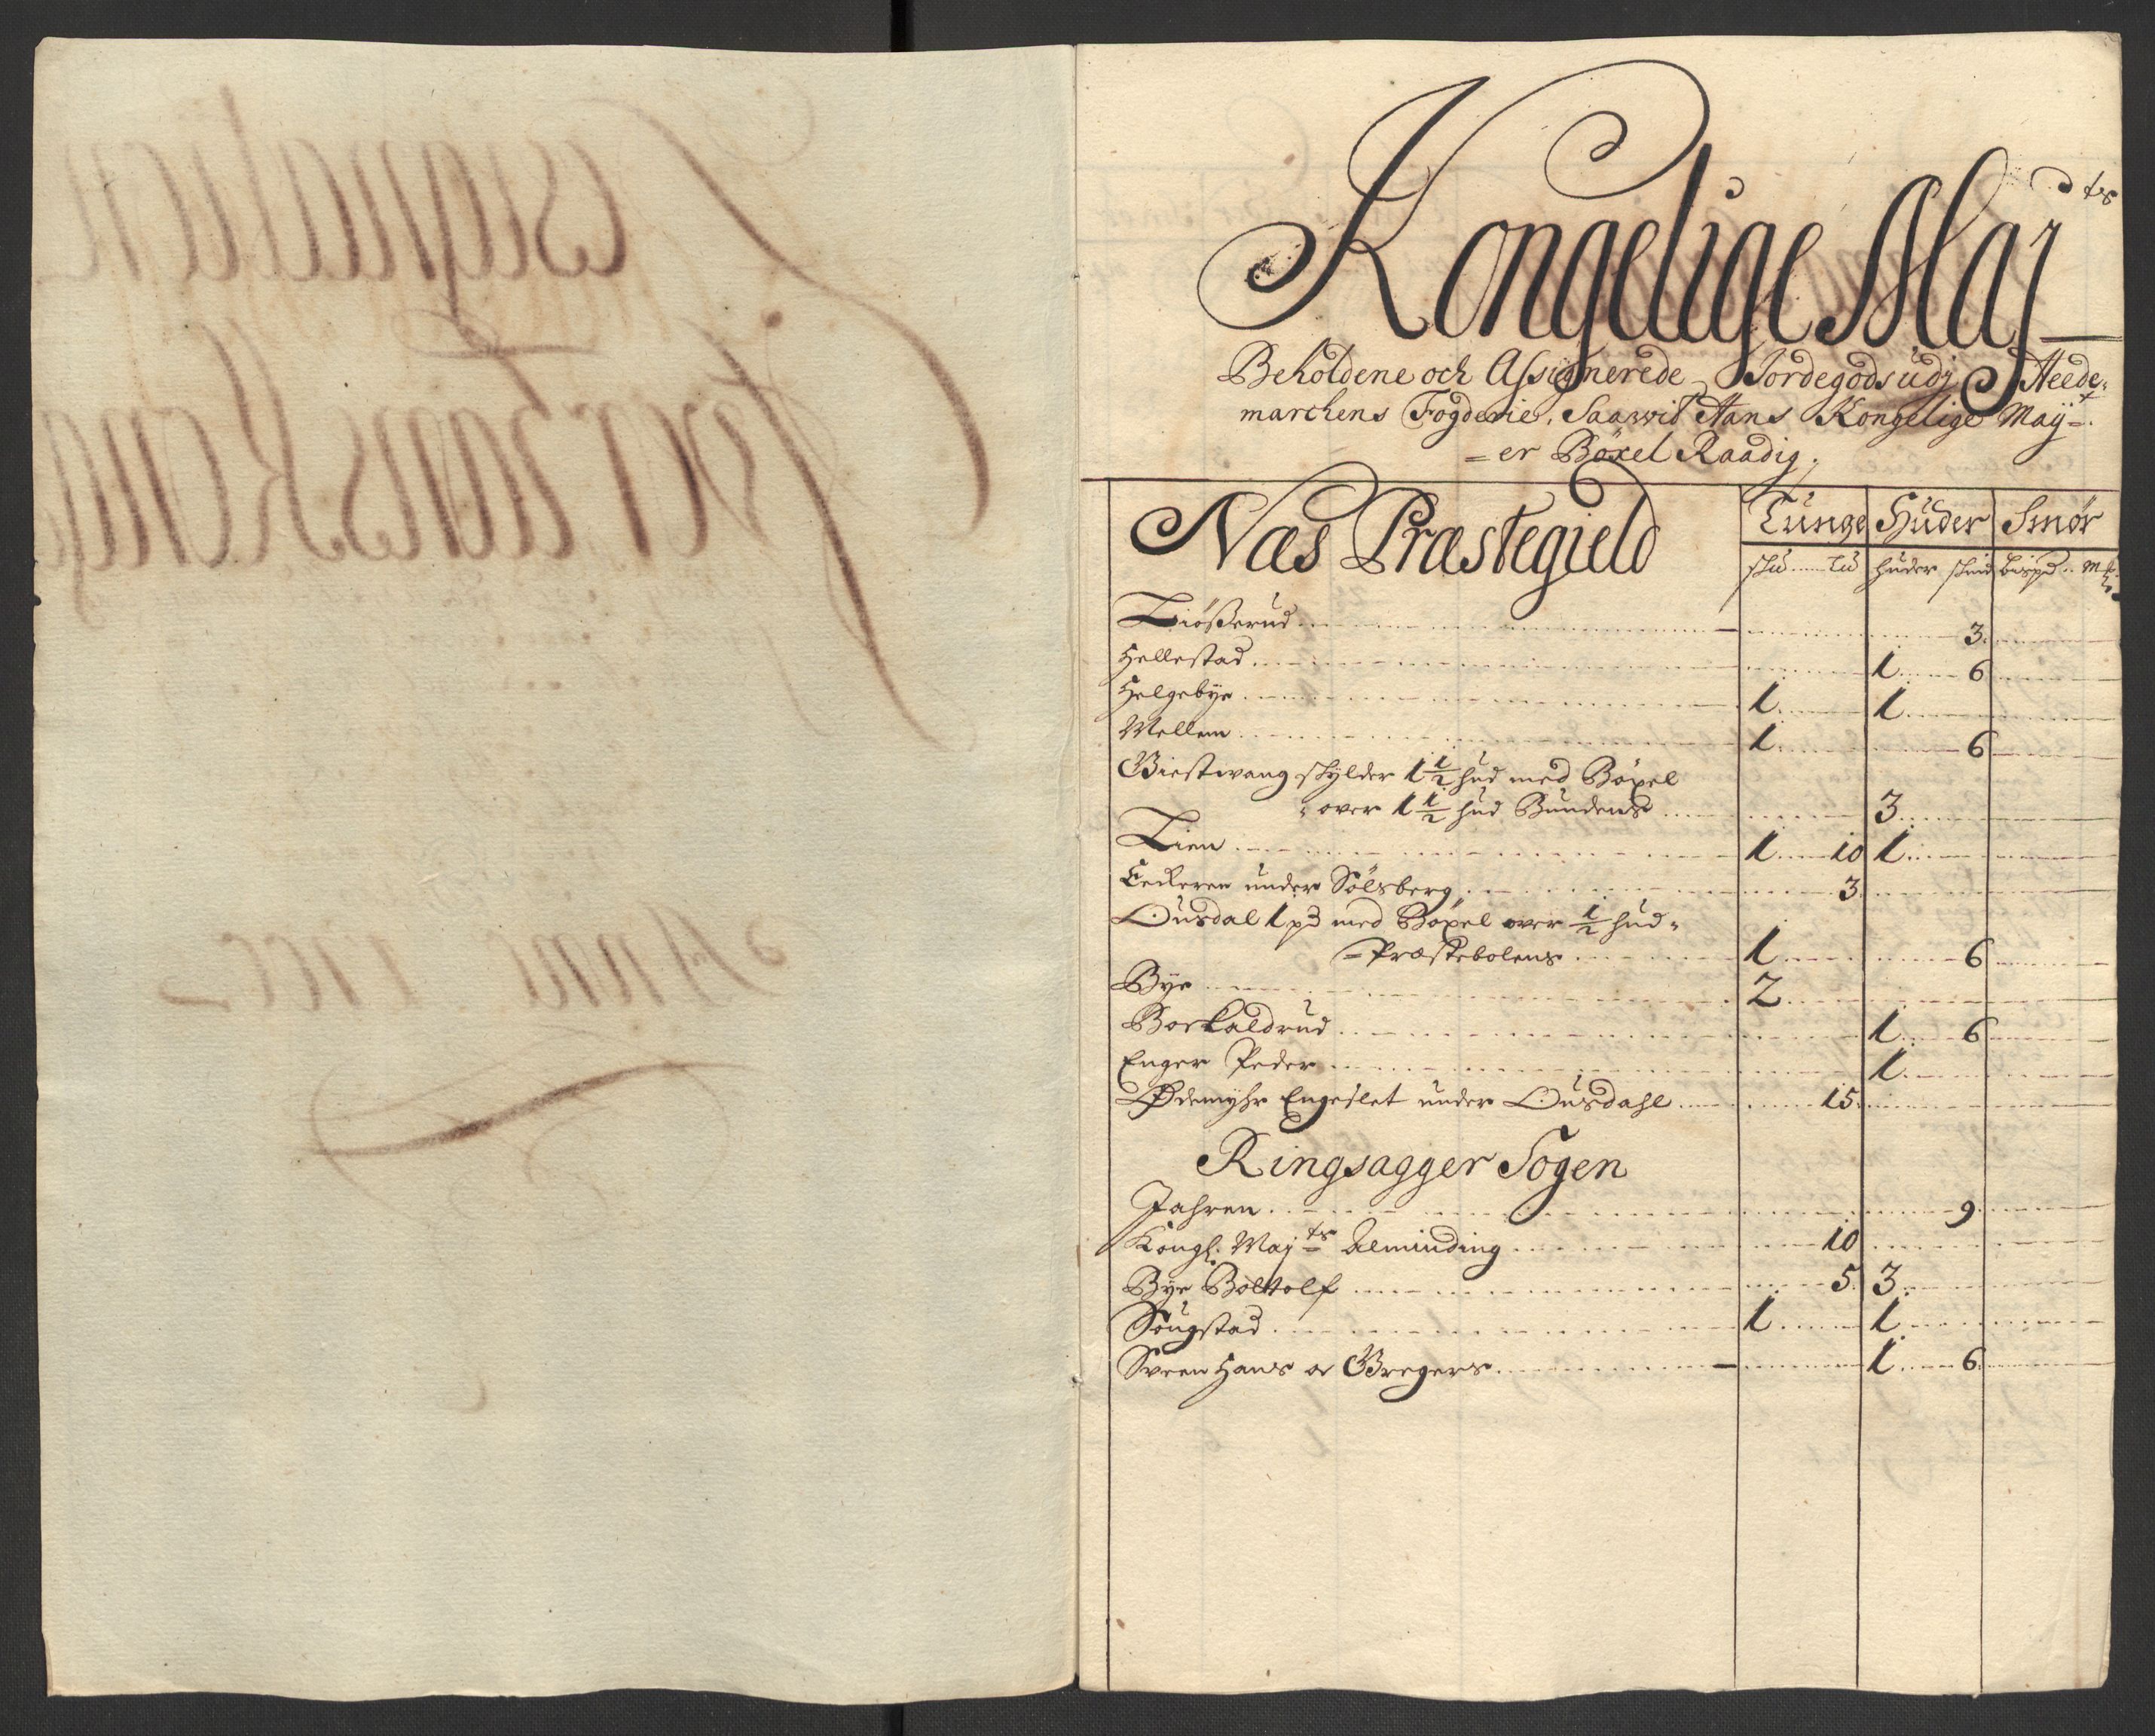 Kongelige Maj ts
Beholdene och Assignerede Jordegods udj Heede-
marchens Fogderie, Saawit Hans Kongelige May t
= er Böxel Raadig.
Næs Præstegield Tunge Huder Smør
shu tu huder skind bispd mk
Tiößerud 3.
Hellestad 1 6
Helgebye 1 1
Mellem 1 6
Giestwang skylder 1 1/2 hud med Böxel
over 1 1/2 hud Bundens 3
Lien 1 10 1
Eekeren under Sölsberg 3
Ousdal 1 pd med Böxel over 1/2 hud
= Præstebolens 1 6
Bye 2
Borkaldrud 1 6
Enger Peder 1
Ødemyhr Engeslet under Ousdahl 15
Ringsagger Sogen
Jahren 9
Kongl. Maj ts Alminding 10
Bye Bottolf 5 3
Sougstad 1 1
Sveen Hans oc Gregers 1 6